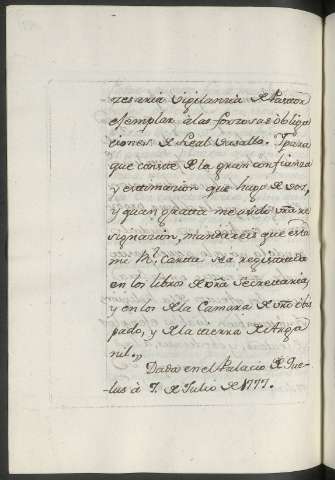 cesaria vigilancia de Pastor
exemplar à las forzosas obliga
ciones de Leal Vasallo. Ypara
que conste de la gran confianza
y estimacion que hago de vos,
y quan grata me ha sido vr̃a re
signacion, mandareis que esta
mi Rl. Carta sea registrada
en los libros de vr̃a Secretaria,
y en los de la Camara de vr̃o obis
pado, y de la tierra de Arga
nil.,,
Dada en el Palacio de Que-
-lus à 7. de Julio de 1777.